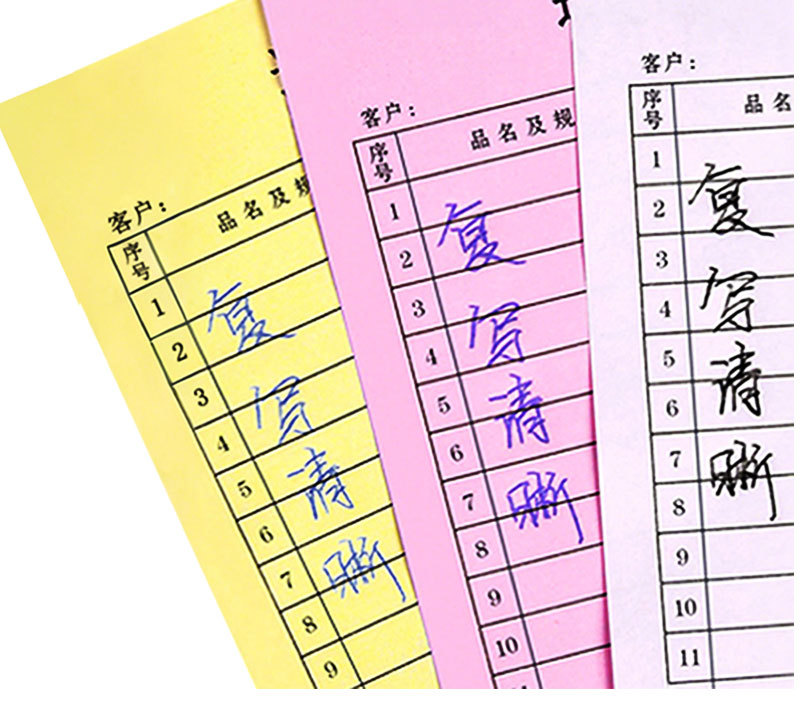 客户：
序号 品名及规
1
2
3
4
5
6
7
8
9
复写清晰
客户：
序号 品名及规
1
2
3
4
5
6
7
8
9
10
复写清晰
客户：
序号 品名
1
2
3
4
5
6
7
8
9
10
11
复写清晰